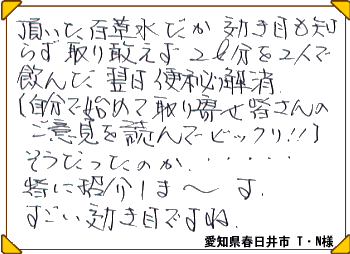 頂いた百草水だが効き目も知
らず取り敢えず2ℓ分を2人で
飲んだ、翌日便秘解消、
(自分で始めて取り寄せ皆さんの
ご意見を読んでビックリ!!)
そうだったのか・・・・・・
皆に紹介しま〜す。
すごい効き目ですね。
愛知県春日井市 T・N様